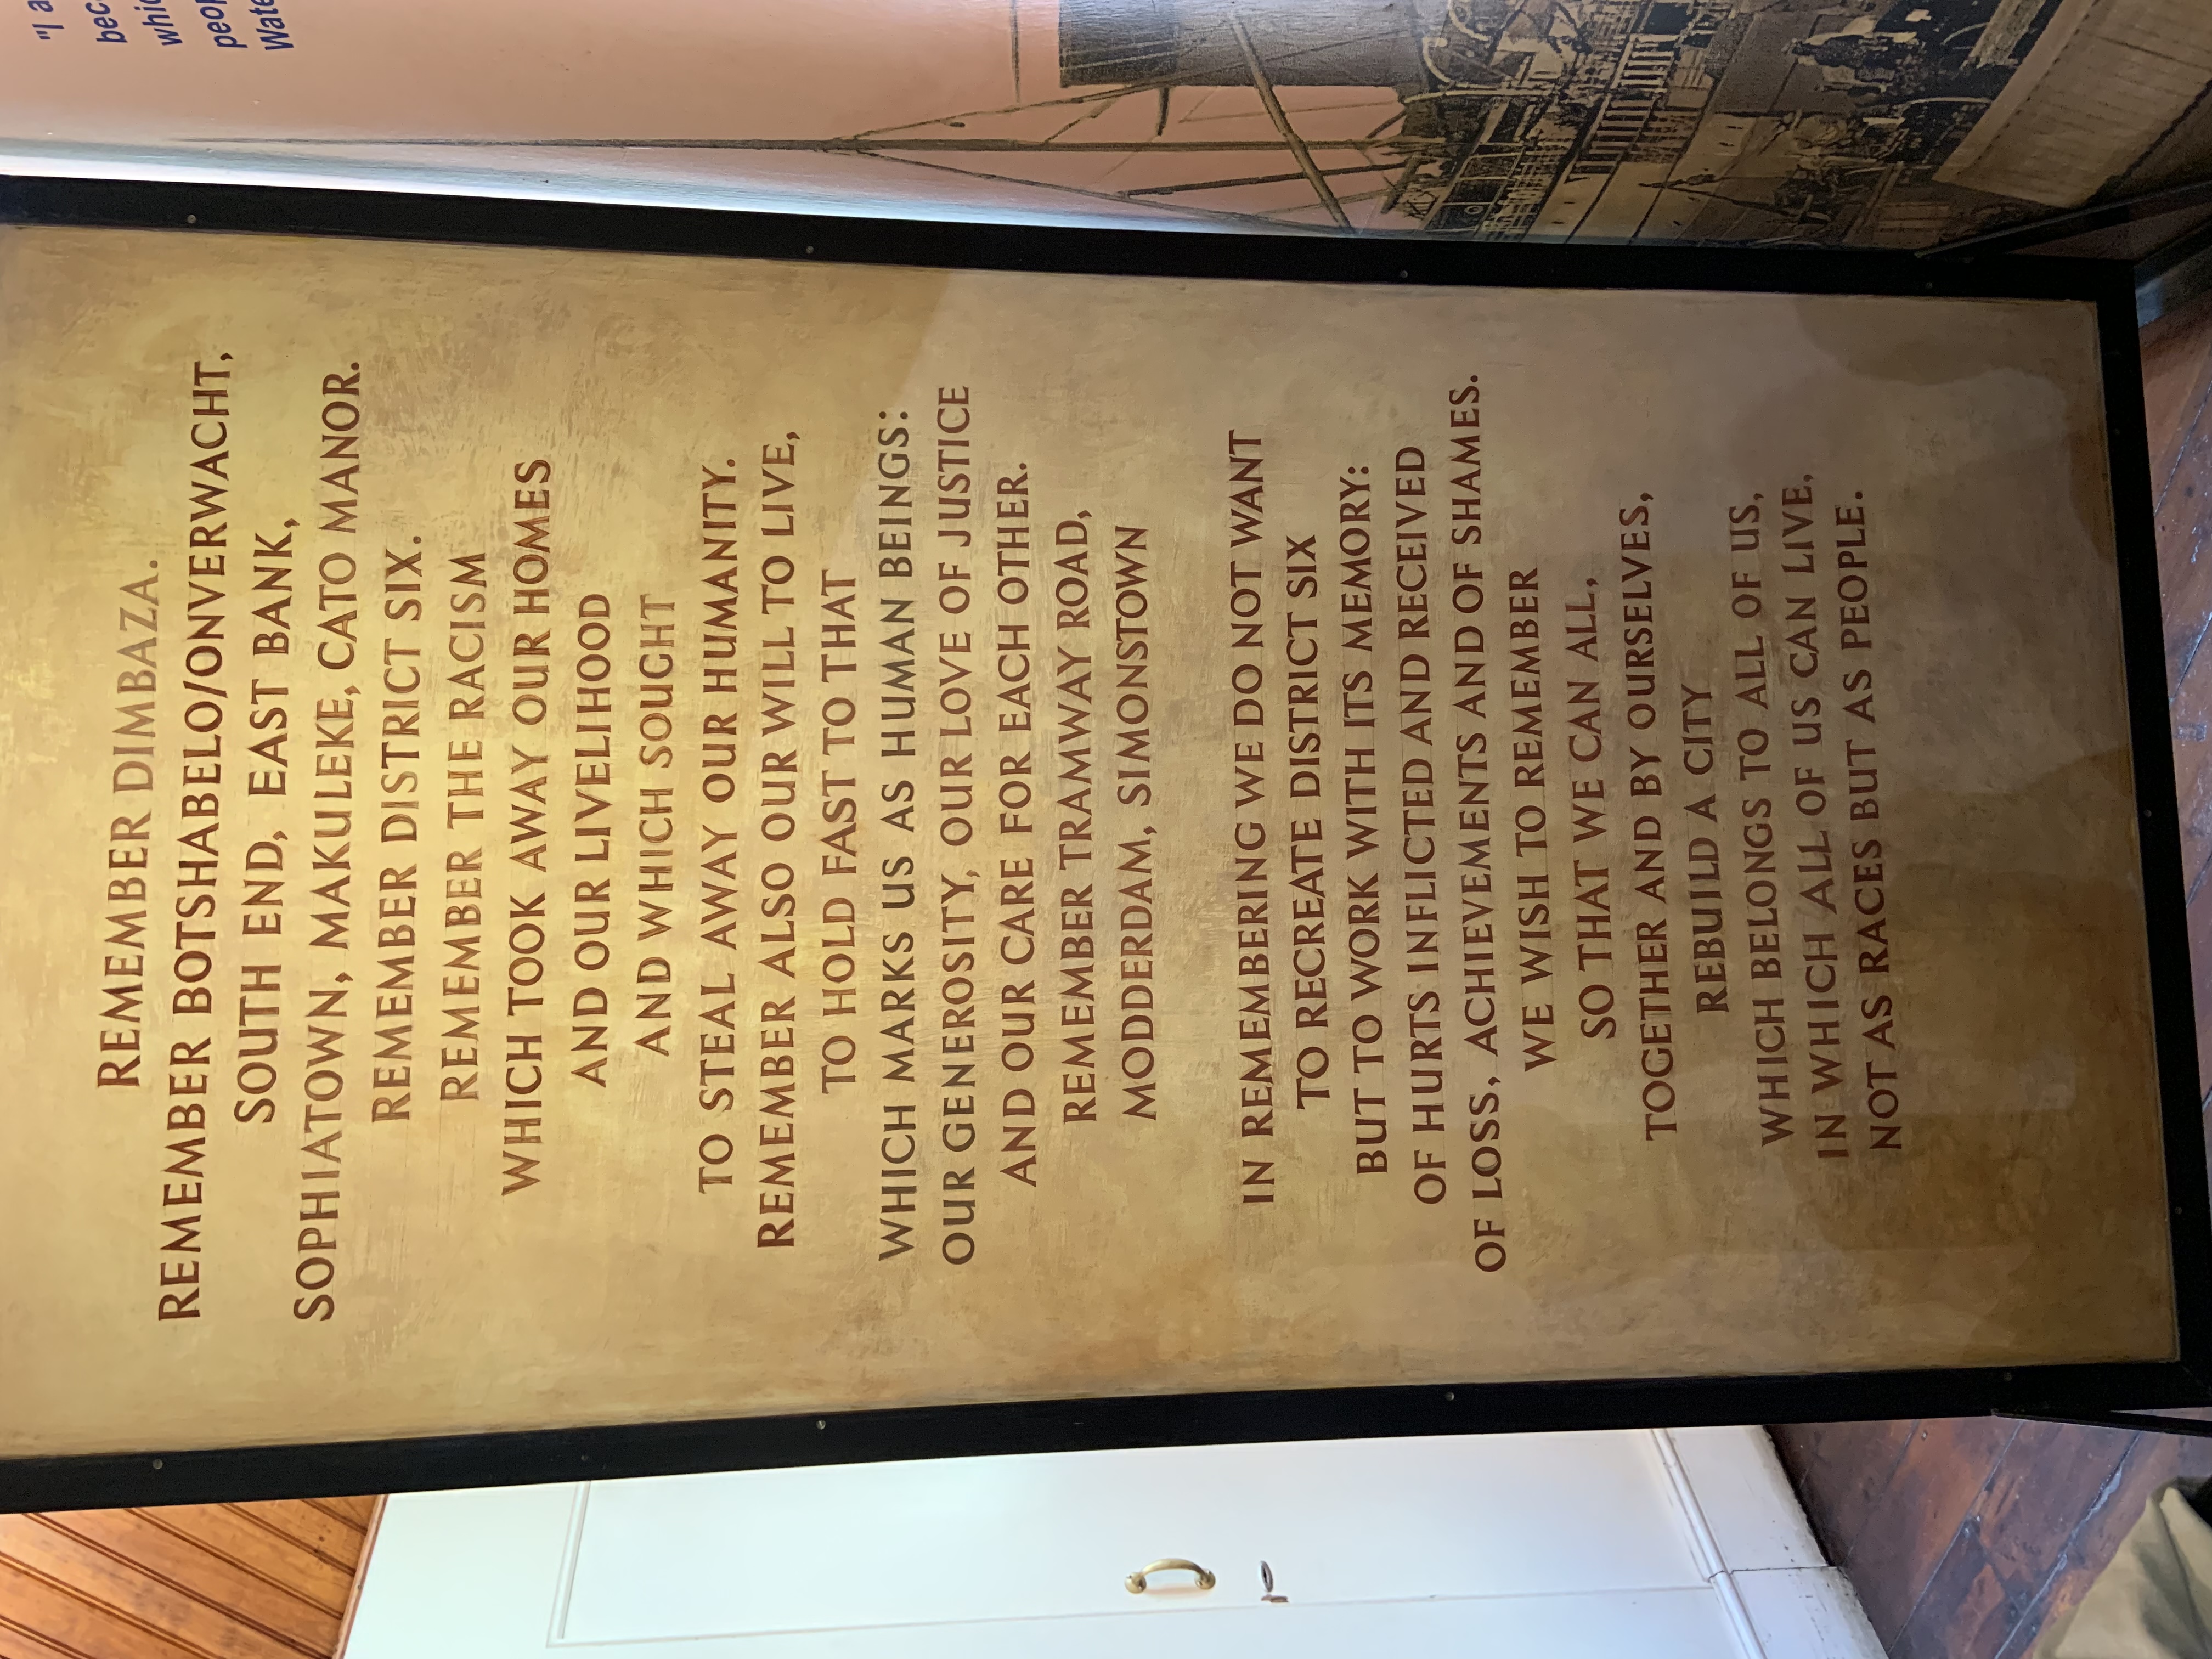 REMEMBER DIMBAZA.
REMEMBER BOTSHABELO/ONVERWACHT,
SOUTH END, EAST BANK,
SOPHIATOWN, MAKULEKE, CATO MANOR.
REMEMBER DISTRICT SIX.
REMEMBER THE RACISM
WHICH TOOK AWAY OUR HOMES
AND OUR LIVELIHOOD
AND WHICH SOUGHT
TO STEAL AWAY OUR HUMANITY.
REMEMBER ALSO OUR WILL TO LIVE,
TO HOLD FAST TO THAT
WHICH MARKS US AS HUMAN BEINGS:
OUR GENEROSITY, OUR LOVE OF JUSTICE
AND OUR CARE FOR EACH OTHER.
REMEMBER TRAMWAY ROAD,
MODDERDAM, SIMONSTOWN
IN REMEMBERING WE DO NOT WANT
TO RECREATE DISTRICT SIX
BUT TO WORK WITH ITS MEMORY:
OF HURTS INFLICTED AND RECEIVED
OF LOSS, ACHIEVEMENTS AND OF SHAMES.
WE WISH TO REMEMBER
SO THAT WE CAN ALL,
TOGETHER AND BY OURSELVES,
REBUILD A CITY
WHICH BELONGS TO ALL OF US,
IN WHICH ALL OF US CAN LIVE,
NOT AS RACES BUT AS PEOPLE.
"I